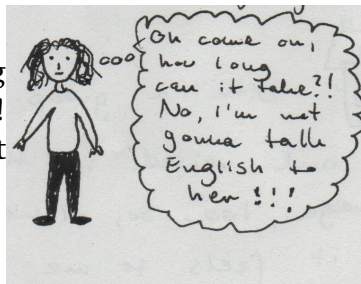 Oh come on,
how long
can it take?!
No, I'm not
gonna talk
English to
her!!!